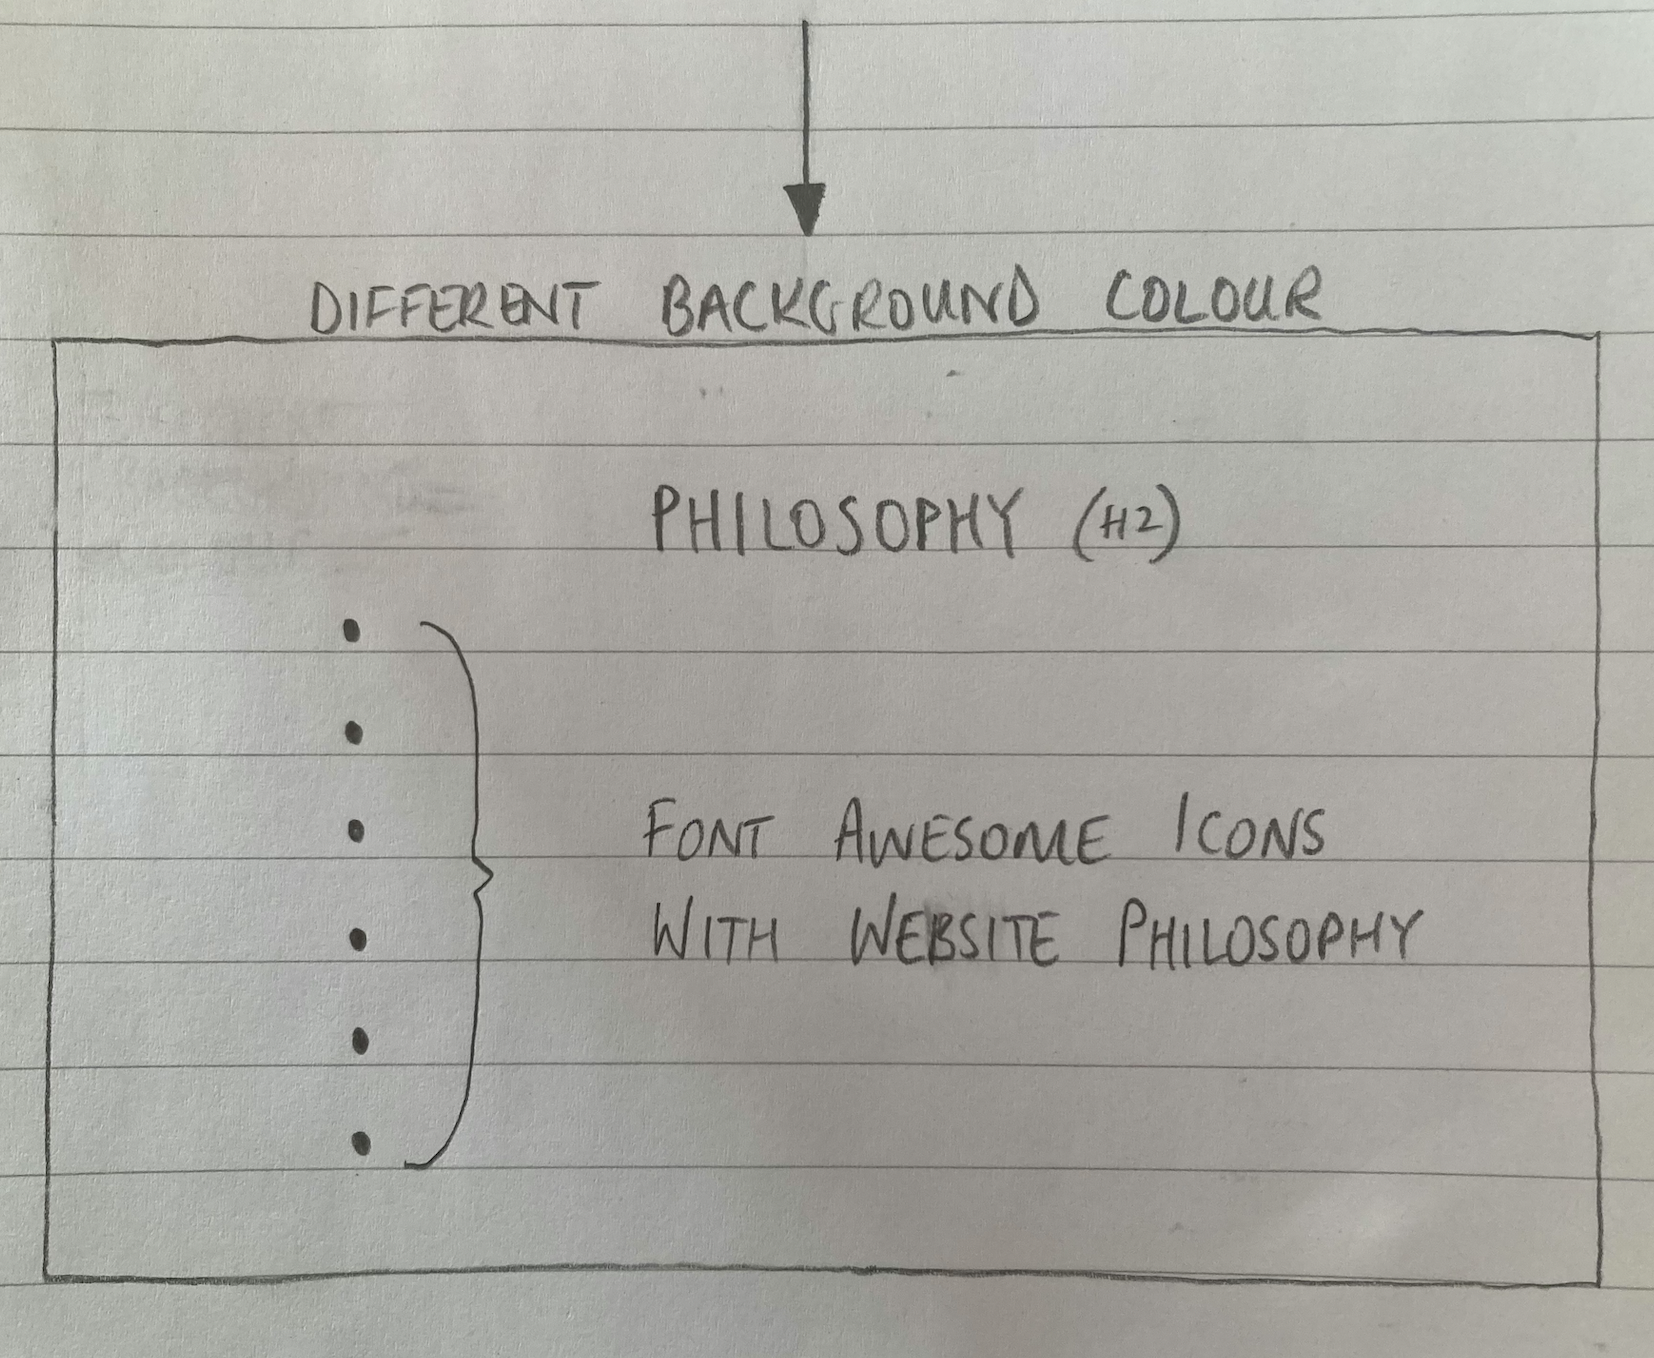 DIFFERENT BACKGROUND COLOUR
PHILOSOPHY (H2)
FONT AWESOME ICONS
WITH WEBSITE PHILOSOPHY